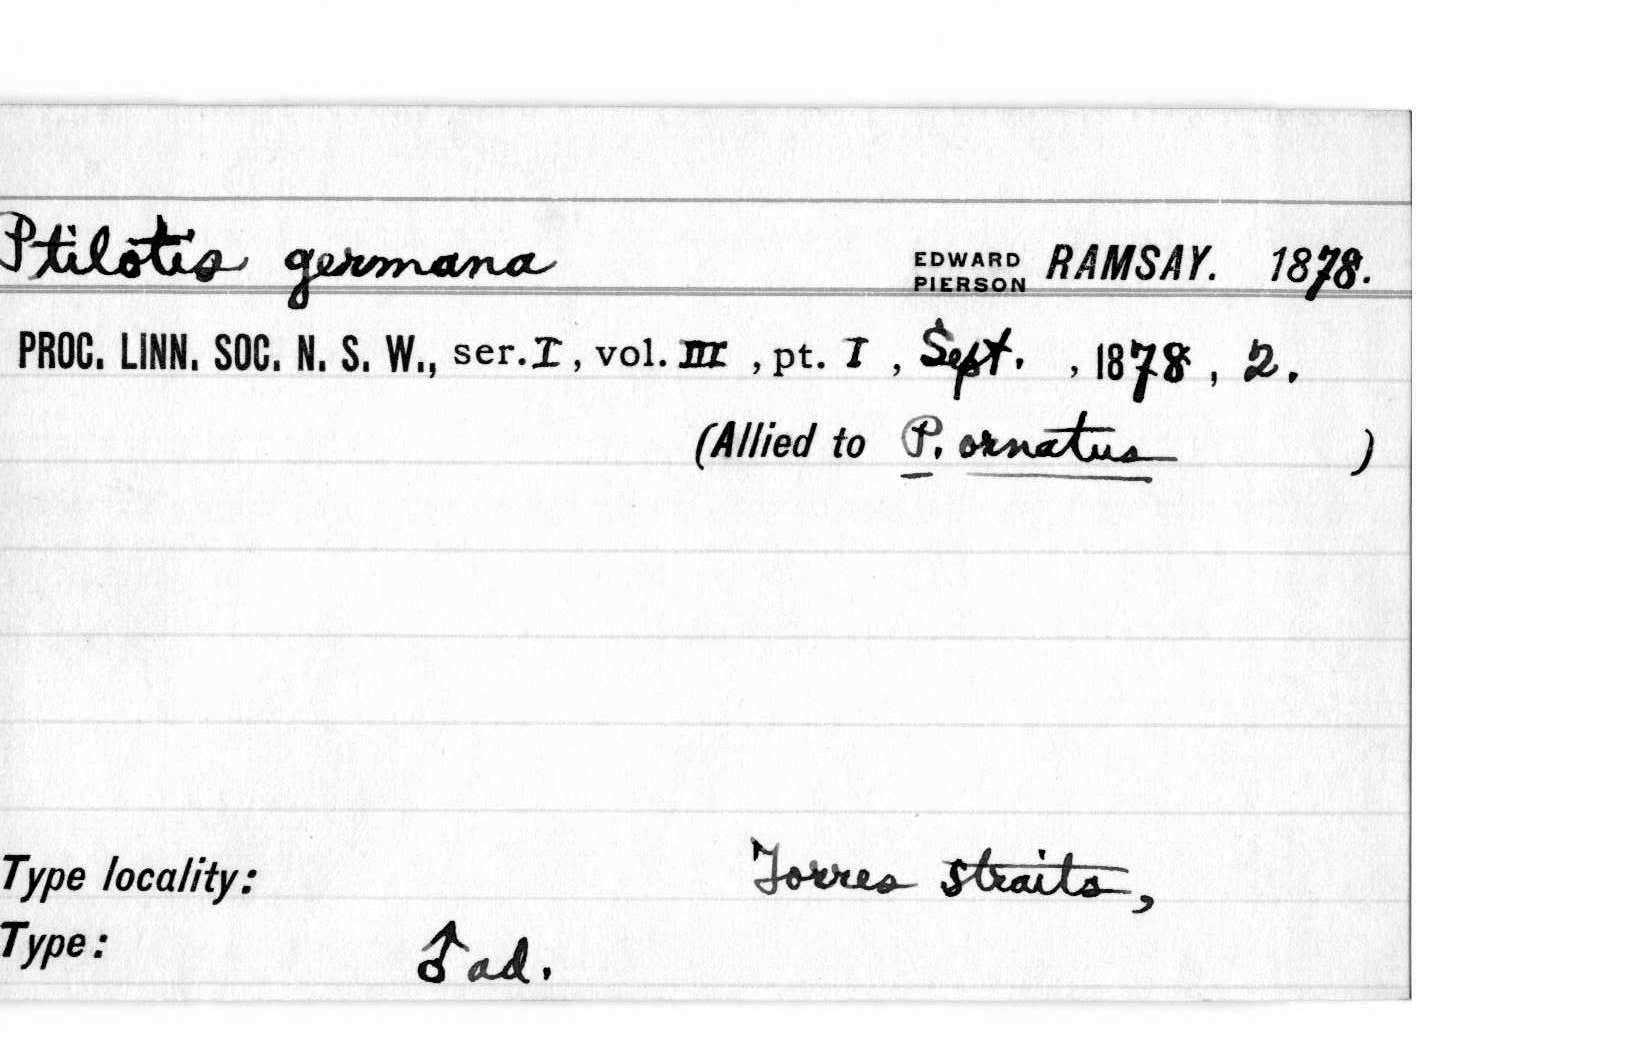 Ptilotis germana EDWARD PIERSON RAMSAY. 1878.
PROC. LINN. SOC. N. S. W., ser. I, vol. III, pt. I, Sept., 1878, 2.
(Allied to P. ornatus )
Type locality: Torres Straits,
Type: ♂ ad.